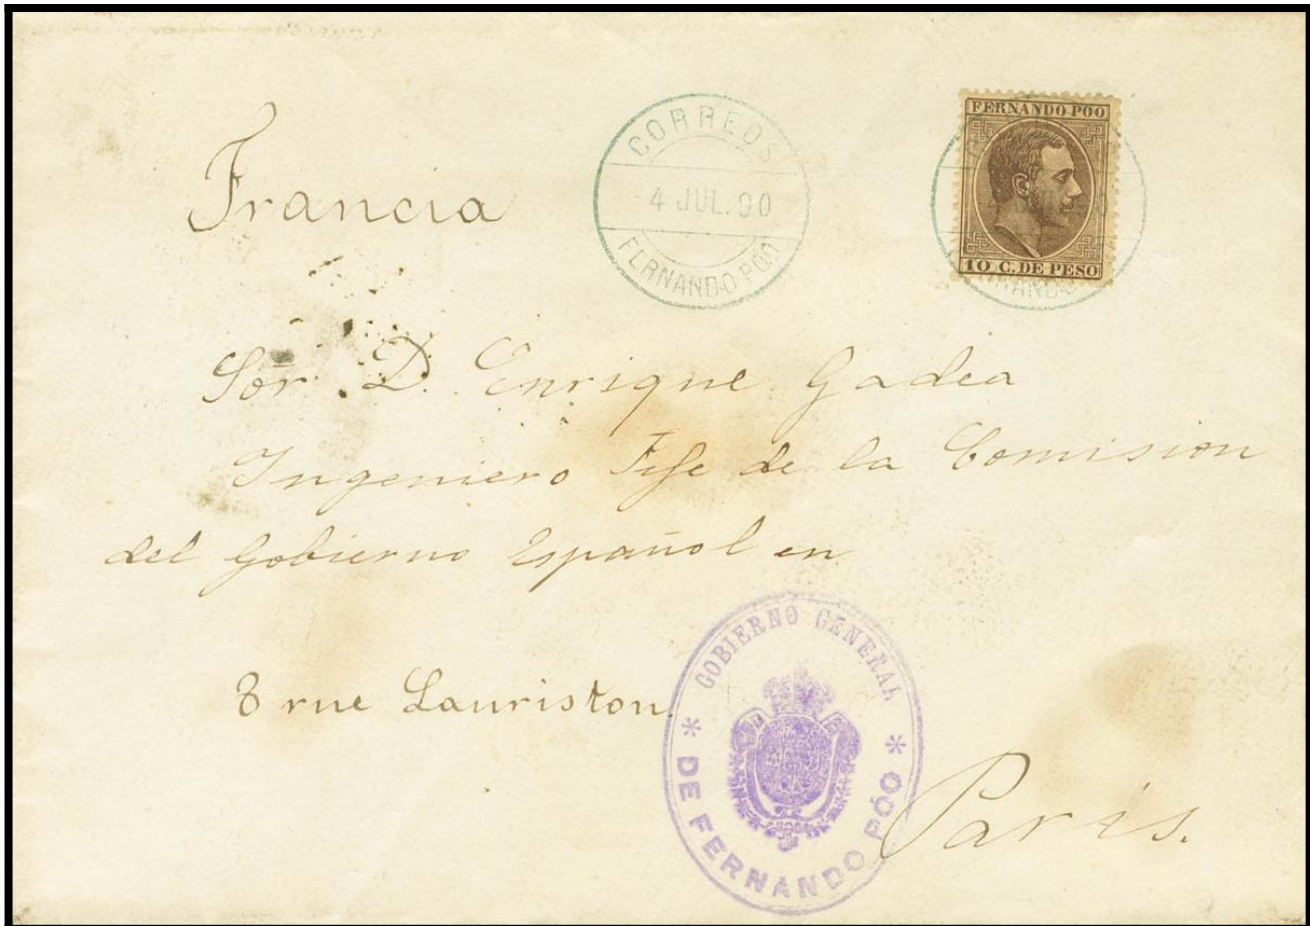 CORREOS
4 JUL. 90
FERNANDO PÓO
FERNANDO POO
10 C. DE PESO
Francia
Sor. D. Enrique Gadea
Ingeniero Jefe de la Comision
del Gobierno Español en
8 rue Lauriston
Paris.
GOBIERNO GENERAL
* DE FERNANDO PÓO *